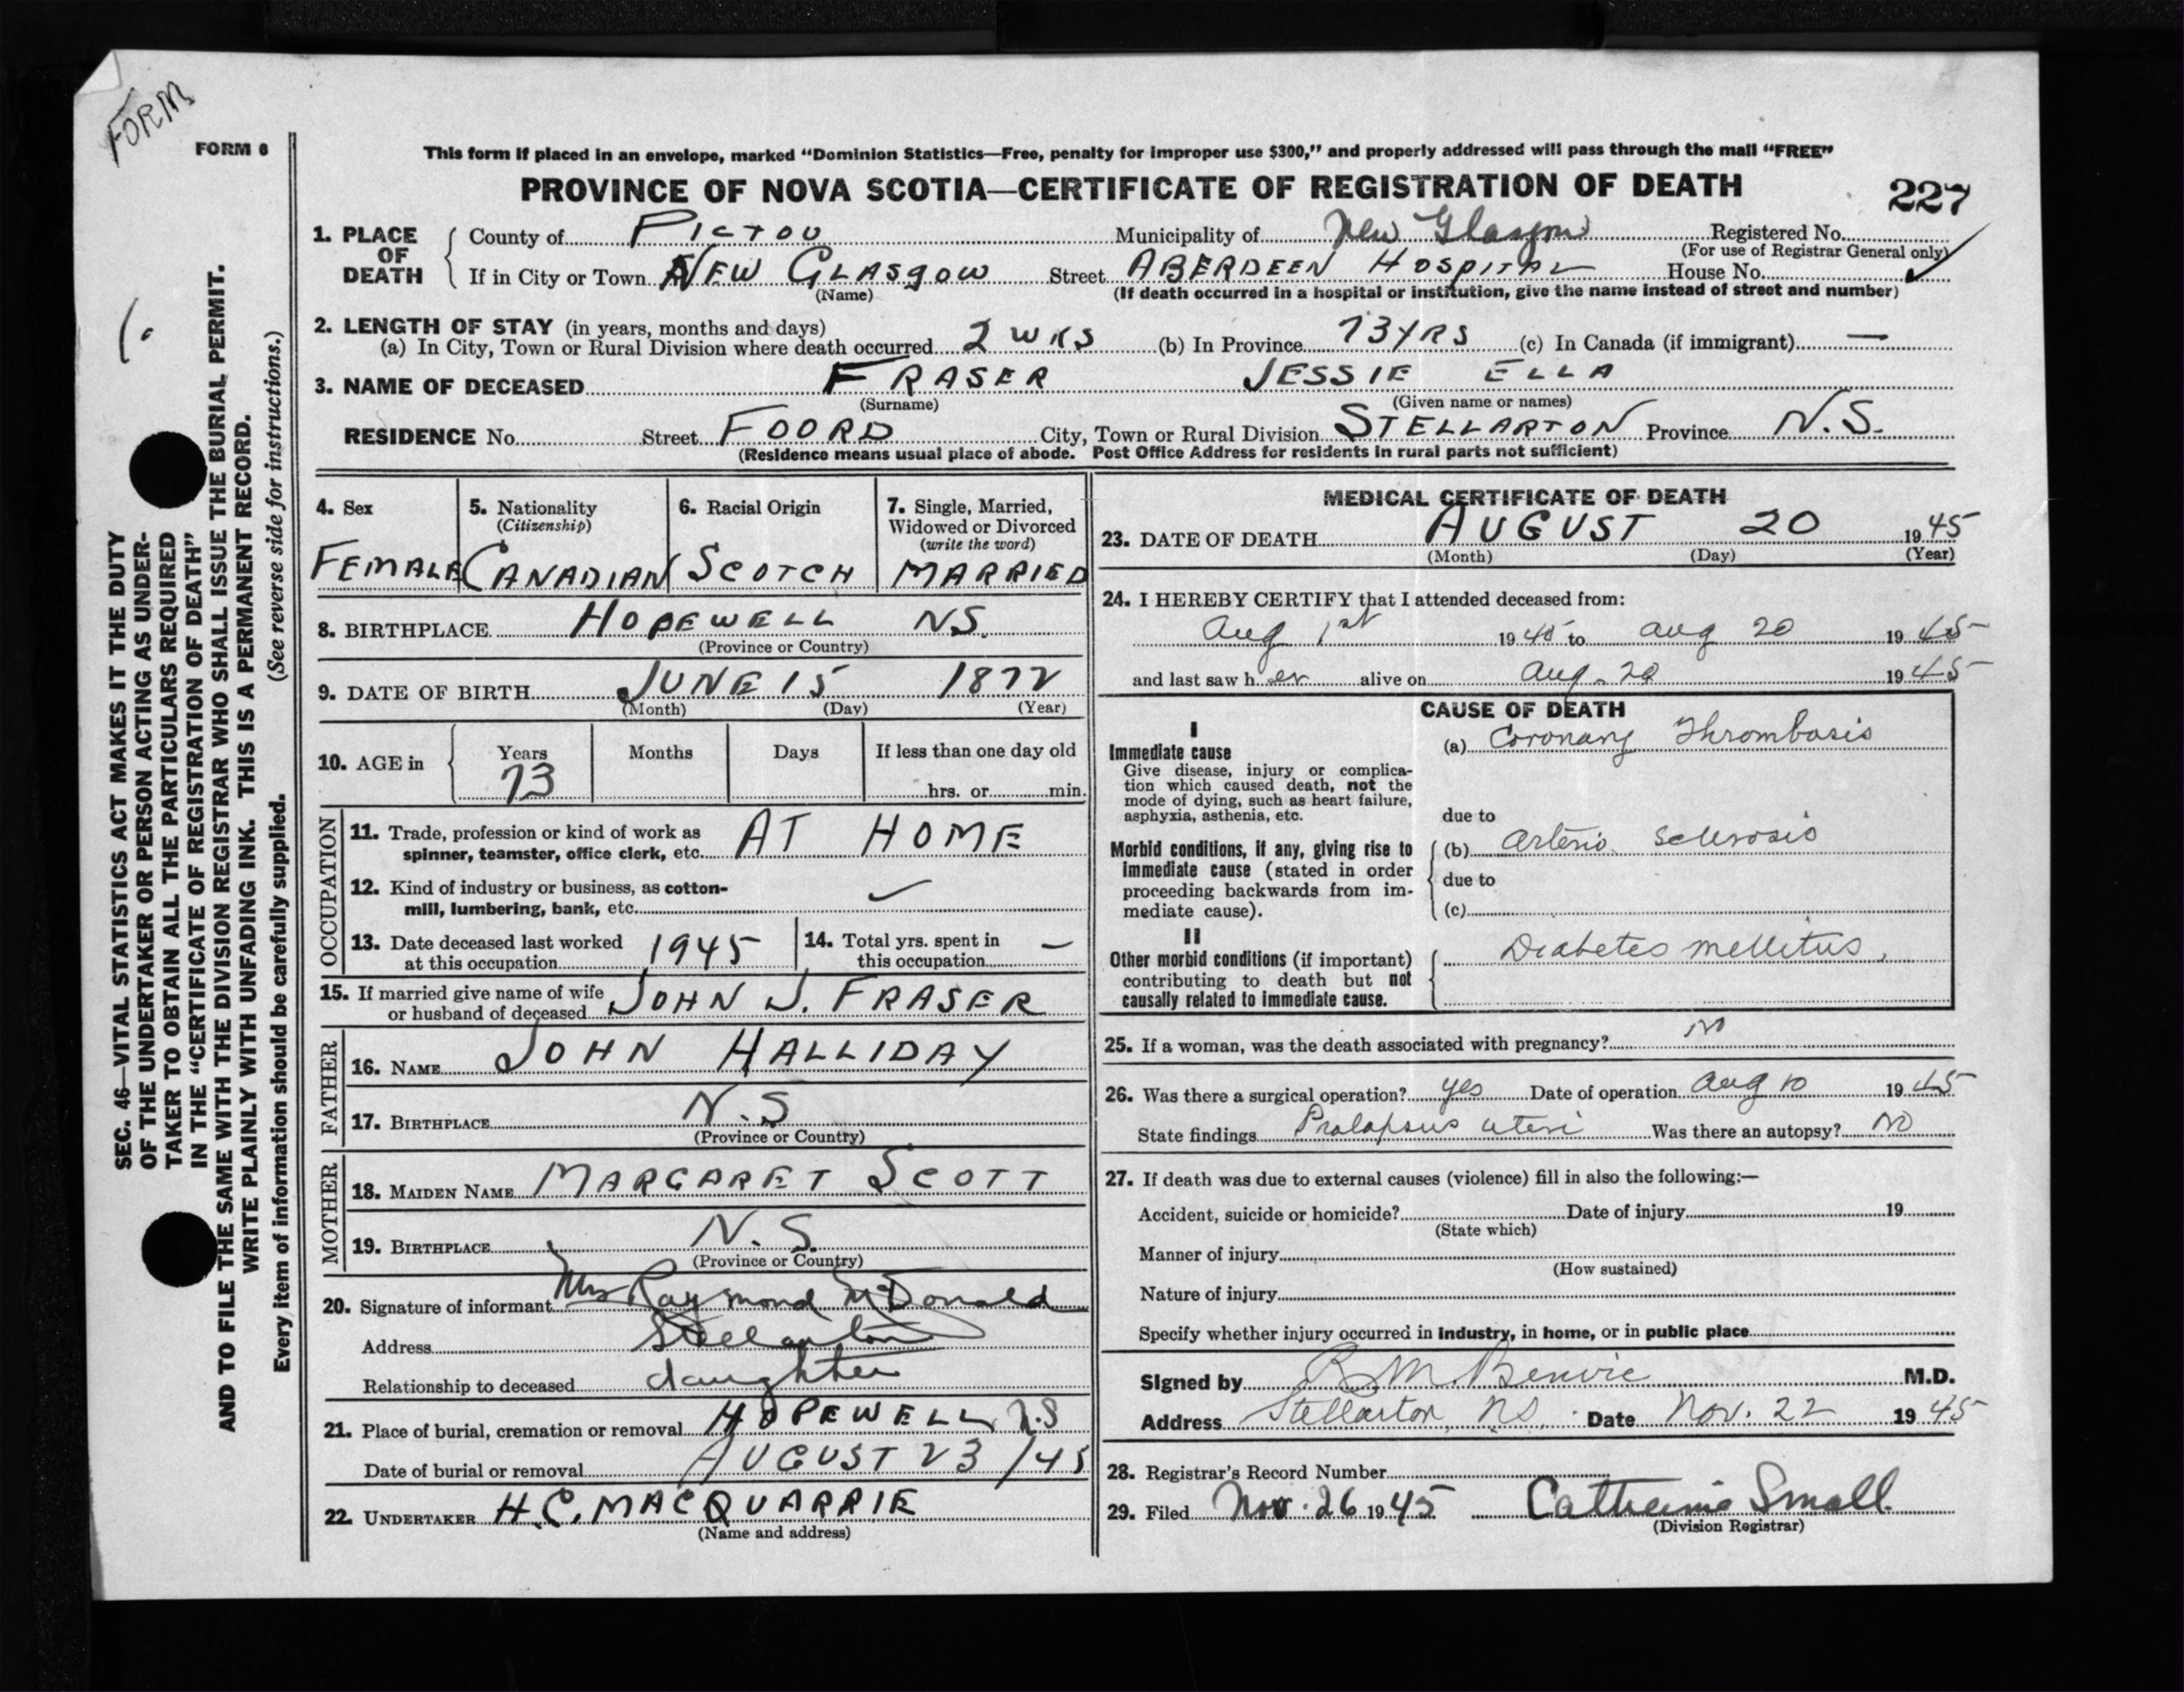 FORM
FORM 6
This form if placed in an envelope, marked “Dominion Statistics—Free, penalty for improper use $300,” and properly addressed will pass through the mail “FREE”
PROVINCE OF NOVA SCOTIA—CERTIFICATE OF REGISTRATION OF DEATH
227
1. PLACE OF DEATH County of PICTOU Municipality of New Glasgow Registered No.
(For use of Registrar General only)
If in City or Town NEW GLASGOW Street ABERDEEN HOSPITAL House No.
(Name) (If death occurred in a hospital or institution, give the name instead of street and number)
2. LENGTH OF STAY (in years, months and days)
(a) In City, Town or Rural Division where death occurred 2 WKS (b) In Province 73 YRS (c) In Canada (if immigrant) —
3. NAME OF DECEASED FRASER JESSIE ELLA
(Surname) (Given name or names)
RESIDENCE No. Street FOORD City, Town or Rural Division STELLARTON Province N.S.
(Residence means usual place of abode. Post Office Address for residents in rural parts not sufficient)
4. Sex 5. Nationality 6. Racial Origin 7. Single, Married,
(Citizenship) Widowed or Divorced
(write the word)
FEMALE CANADIAN SCOTCH MARRIED
8. BIRTHPLACE HOPEWELL NS.
(Province or Country)
9. DATE OF BIRTH JUNE 15 1872
(Month) (Day) (Year)
10. AGE in Years Months Days If less than one day old
73 hrs. or min.
OCCUPATION
11. Trade, profession or kind of work as
spinner, teamster, office clerk, etc. AT HOME
12. Kind of industry or business, as cotton-
mill, lumbering, bank, etc.
13. Date deceased last worked
at this occupation 1945
14. Total yrs. spent in
this occupation —
15. If married give name of wife
or husband of deceased JOHN J. FRASER
FATHER
16. NAME JOHN HALLIDAY
17. BIRTHPLACE N.S
(Province or Country)
MOTHER
18. MAIDEN NAME MARGARET SCOTT
19. BIRTHPLACE N.S.
(Province or Country)
20. Signature of informant Mrs Raymond McDonald
Address Stellarton
Relationship to deceased daughter
21. Place of burial, cremation or removal HOPEWELL N.S
Date of burial or removal AUGUST 23/45
22. UNDERTAKER H.C. MACQUARRIE
(Name and address)
MEDICAL CERTIFICATE OF DEATH
23. DATE OF DEATH AUGUST 20 1945
(Month) (Day) (Year)
24. I HEREBY CERTIFY that I attended deceased from:
Aug 1st 1945 to Aug 20 1945
and last saw her alive on Aug. 20 1945
CAUSE OF DEATH
I
Immediate cause
Give disease, injury or complica-
tion which caused death, not the
mode of dying, such as heart failure,
asphyxia, asthenia, etc.
(a) Coronary Thrombosis
due to
Morbid conditions, if any, giving rise to
immediate cause (stated in order
proceeding backwards from im-
mediate cause).
(b) Arterio Sclerosis
due to
(c)
II
Other morbid conditions (if important)
contributing to death but not
causally related to immediate cause.
Diabetes mellitus,
25. If a woman, was the death associated with pregnancy? No
26. Was there a surgical operation? yes Date of operation Aug 10 1945
State findings Prolapsus uteri Was there an autopsy? No
27. If death was due to external causes (violence) fill in also the following:—
Accident, suicide or homicide? Date of injury 19
(State which)
Manner of injury
(How sustained)
Nature of injury
Specify whether injury occurred in industry, in home, or in public place
Signed by R M Benvie M.D.
Address Stellarton, NS. Date Nov. 22 1945
28. Registrar's Record Number
29. Filed Nov. 26 1945 Catherine Small.
(Division Registrar)
SEC. 46—VITAL STATISTICS ACT MAKES IT THE DUTY
OF THE UNDERTAKER OR PERSON ACTING AS UNDER-
TAKER TO OBTAIN ALL THE PARTICULARS REQUIRED
IN THE “CERTIFICATE OF REGISTRATION OF DEATH”
AND TO FILE THE SAME WITH THE DIVISION REGISTRAR WHO SHALL ISSUE THE BURIAL PERMIT.
WRITE PLAINLY WITH UNFADING INK. THIS IS A PERMANENT RECORD.
Every item of information should be carefully supplied. (See reverse side for instructions.)